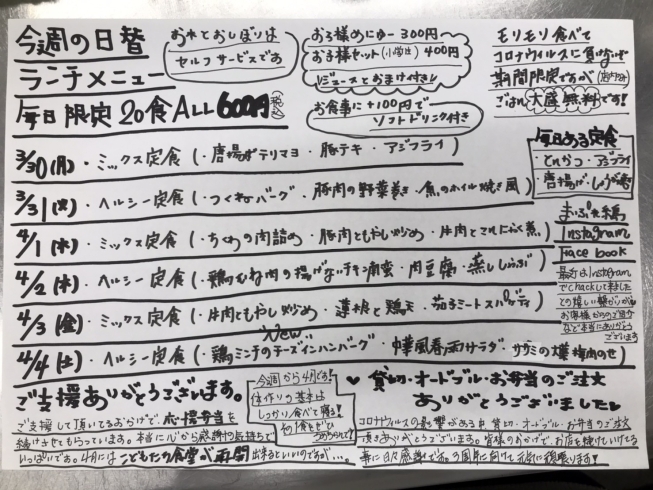 今週の日替
ランチメニュー
毎日限定20食ALL600円(税込)
お水とおしぼりは
セルフサービスです
お子様めにゅー300円
お子様セット(小学生)400円
(ジュースとおまけ付き)
お食事に+100円で
ソフトドリンク付き
モリモリ食べて
コロナウィルスに負けないぞ
期間限定ですが(店内のみ)
ごはん大盛無料です!
毎日ある定食
・とんかつ・アジフライ
・唐揚げ・しょうが焼き
3/30(月)・ミックス定食(・唐揚げテリマヨ・豚テキ・アジフライ)
3/31(火)・ヘルシー定食(・つくねバーグ・豚肉の野菜巻き・魚のホイル焼き風)
4/1(水)・ミックス定食(・ちくわの肉詰め・豚肉ともやし炒め・牛肉とこんにゃく煮)
4/2(木)・ヘルシー定食(・鶏むね肉の揚げないチキン南蛮・肉豆腐・蒸ししゃぶ)
4/3(金)・ミックス定食(・牛肉ともやし炒め・蓮根と鶏天・茄子ミートスパゲティ)
New
4/4(土)・ヘルシー定食(・鶏ミンチのチーズインハンバーグ・中華風春雨サラダ・ササミの燻梅肉のせ)
Instagram
Facebook
最近はInstagram
でcheckして来ました
との嬉しい繋がりや
お客様からのご紹介
など本当にありがとう
ございます
ご支援ありがとうございます。
ご支援して頂いてるおかげで応援弁当を
続けさせてもらっています。本当に心から感謝の気持ちで
いっぱいです。4月にはこどもたの食堂が再開出来るといいのですが…。
今週から4月です!
体作りの基本は
しっかり食べて寝る!
貸切・オードブル・お弁当のご注文
ありがとうございました
コロナウィルスの影響がある中、貸切・オードブル・お弁当のご注文
頂きありがとうございます。皆様のおかげで、お店を続けていけてる
事に日々感謝です。